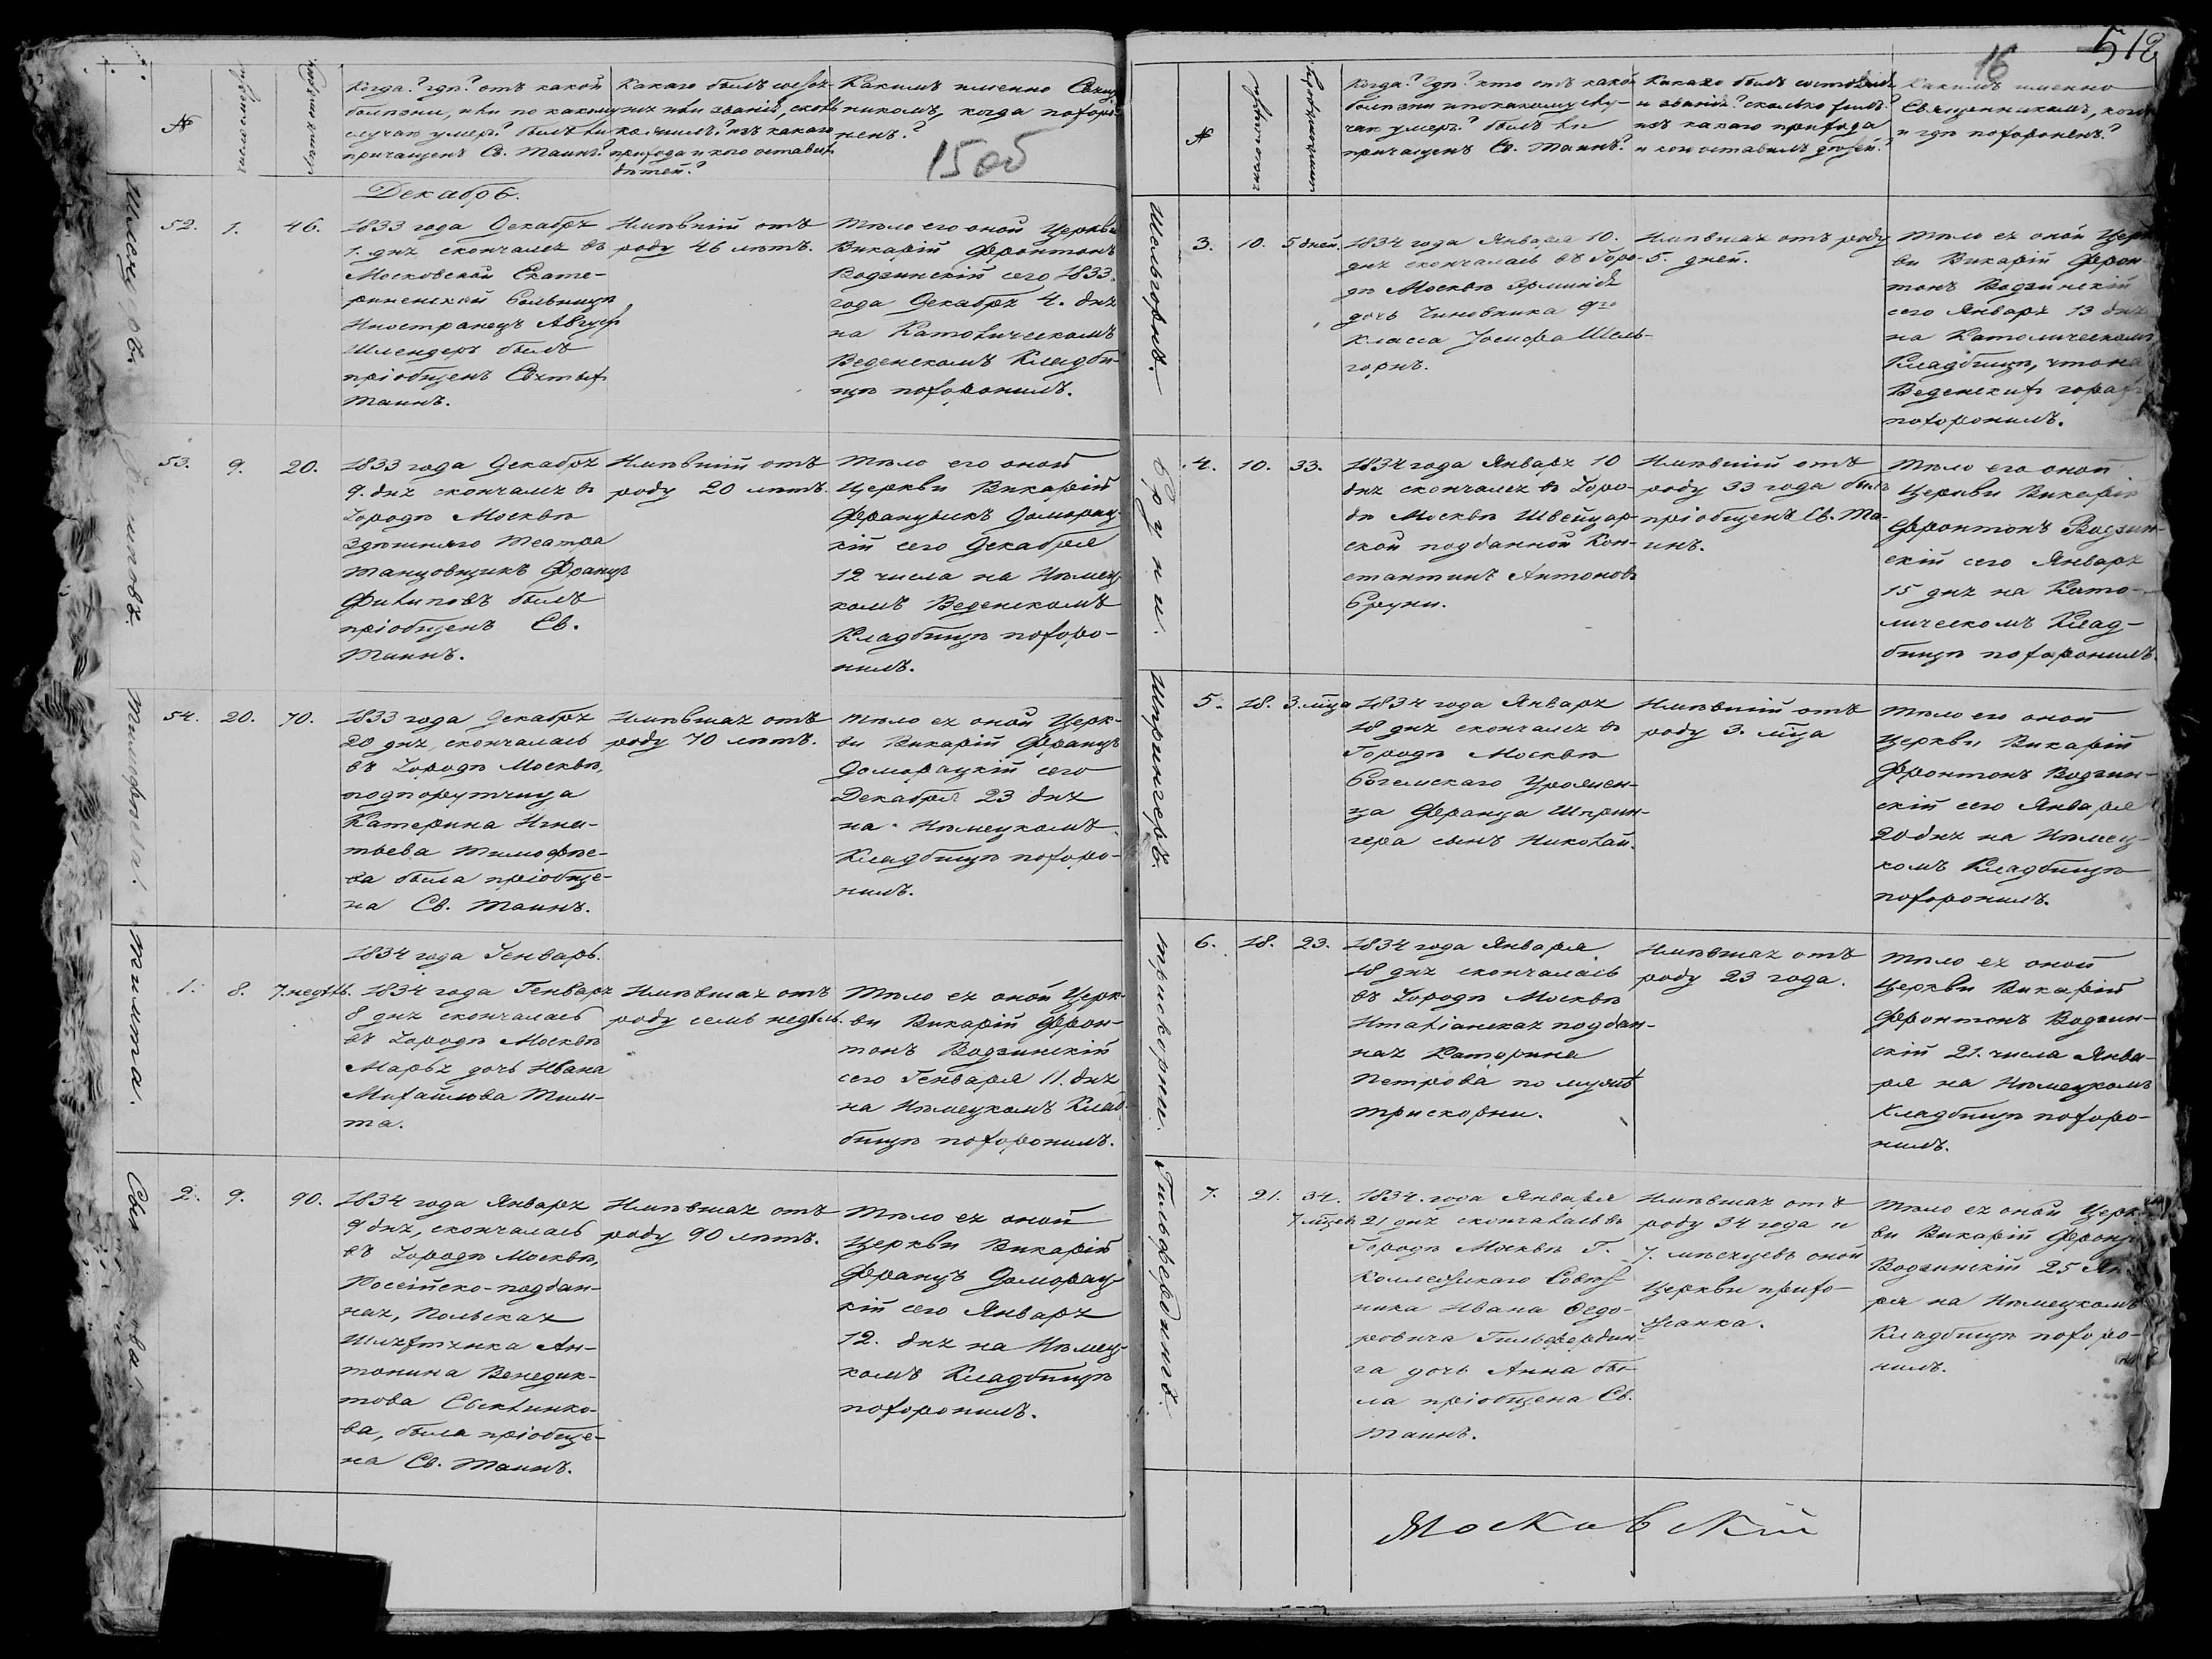 №
число смерти
лѣта отъ роду
Когда? гдѣ? отъ какой
болѣзни, или по какому
случаю умеръ? былъ ли
причащенъ Св. Таинъ?
Какаго былъ состоя-
нія или званія, сколь-
ко жилъ? изъ какаго
прихода и кого оставилъ
дѣтей?
Какимъ именно Священ-
никомъ, когда похоро-
ненъ?
15 об
Декабрь.
Шлендеръ.
52.
1.
46.
1833 года Декабря
1. дня скончался въ
Московской Екате-
риненской больницѣ
Иностранецъ Августъ
Шлендеръ былъ
пріобщенъ Святыхъ
Таинъ.
Имѣвшій отъ
роду 46 лѣтъ.
Тѣло его оной Церкви
Викарій Фронтонъ
Водзинскій сего 1833.
года Декабря 4. дня
на Католическомъ
Веденскомъ Кладби-
щѣ похоронилъ.
Филиповъ.
53.
9.
20.
1833 года Декабря
9. дня скончался въ
Городѣ Москвѣ
Здѣшняго Театра
танцовщикъ Францъ
Филиповъ былъ
пріобщенъ Св.
Таинъ.
Имѣвшій отъ
роду 20 лѣтъ.
Тѣло его оной
Церкви Викарій
Францискъ Доморац-
кій сего Декабря
12 числа на Нѣмец-
комъ Веденскомъ
Кладбищѣ похоро-
нилъ.
Тимофѣева.
54.
20.
70.
1833 года Декабря
20 дня, скончалась
въ Городѣ Москвѣ,
подпорутчица
Катерина Игна-
тьева Тимофѣе-
ва была пріобще-
на Св. Таинъ.
Имѣвшая отъ
роду 70 лѣтъ.
Тѣло ея оной Церк-
ви Викарій Францъ
Доморацкій сего
Декабря 23 дня
на Нѣмецкомъ
Кладбищѣ похоро-
нилъ.
1834 года Генварь.
Тимта.
1.
8.
7. недѣль.
1834 года Генваря
8 дня скончалась
въ Городѣ Москвѣ
Марья дочь Ивана
Михайлова Тим-
та.
Имѣвшая отъ
роду семь недѣль.
Тѣло ея оной Церк-
ви Викарій Фрон-
тонъ Водзинскій
сего Генваря 11. дня
на Нѣмецкомъ Клад-
бищѣ похоронилъ.
2.
9.
90.
1834 года Января
9 дня, скончалась
въ Городѣ Москвѣ,
Россійско-поддан-
ная, Польская
Шляхтянка Ан-
тонина Венедик-
това
ва, была пріобще-
на Св. Таинъ.
Имѣвшая отъ
роду 90 лѣтъ.
Тѣло ея оной
Церкви Викарій
Францъ Доморац-
кій сего Января
12. дня на Нѣмец-
комъ Кладбищѣ
похоронилъ.
512
16
№
Когда? Гдѣ? кто отъ какой
болѣзни и по какому слу-
чаю умеръ? былъ ли
причащенъ Св. Таинъ?
Какаго былъ состоянія
и званія? сколько жилъ?
изъ какаго прихода
и кого оставилъ дѣтей?
Какимъ именно
Священникомъ, когда
и гдѣ похороненъ?
Шельгорнъ.
3.
10.
5 дней.
1834 года Января 10.
дня скончалась въ Горо-
дѣ Москвѣ Эрминія
дочь Чиновника 9го
класса Іосифа Шель-
горнъ.
Имѣвшая отъ роду
5. дней.
Тѣло ея оной Церк-
ви Викарій Фрон-
тонъ Водзинскій
сего Января 13 дня
на Католическомъ
Кладбищѣ, что на
Веденскихъ горахъ
похоронилъ.
Бруни.
4.
10.
33.
1834 года Января 10
дня скончался въ Горо-
дѣ Москвѣ Швейцар-
ской подданной Кон-
стантинъ Антоновъ
Бруни.
Имѣвшій отъ
роду 33 года былъ
пріобщенъ Св. Та-
инъ.
Тѣло его оной
Церкви Викарій
Фронтонъ Водзин-
скій сего Января
15 дня на Като-
лическомъ Клад-
бищѣ похоронилъ.
Шпрингеръ.
5.
18.
3. мѣца
1834 года Января
18 дня скончался въ
Городѣ Москвѣ
Богемскаго Урожен-
ца Франца Шприн-
гера сынъ Николай.
Имѣвшій отъ
роду 3. мѣца
Тѣло его оной
Церкви Викарій
Фронтонъ Водзин-
скій сего Января
20 дня на Нѣмец-
комъ Кладбищѣ
похоронилъ.
Трискорни.
6.
18.
23.
1834 года Января
18 дня скончалась
въ Городѣ Москвѣ
Италіанская поддан-
ная Катерина
Петрова по мужѣ
Трискорни.
Имѣвшая отъ
роду 23 года.
Тѣло ея оной
Церкви Викарій
Фронтонъ Водзин-
скій 21. числа Янва-
ря на Нѣмецкомъ
Кладбищѣ похоро-
нилъ.
Гильфердингъ.
7.
21.
34.
7 мѣцев
1834. года Января
21 дня скончалась въ
Городѣ Москвѣ Г.
Коллежскаго Совѣт-
ника Ивана Федо-
ровича Гильфердин-
га дочь Анна бы-
ла пріобщена Св.
Таинъ.
Имѣвшая отъ
роду 34 года и
7. мѣсяцевъ оной
Церкви прихо-
жанка.
Тѣло ея оной Церк-
ви Викарій Фронт
Водзинскій 25 Ян-
ря на Нѣмецкомъ
Кладбищѣ похоро-
нилъ.
Московскій